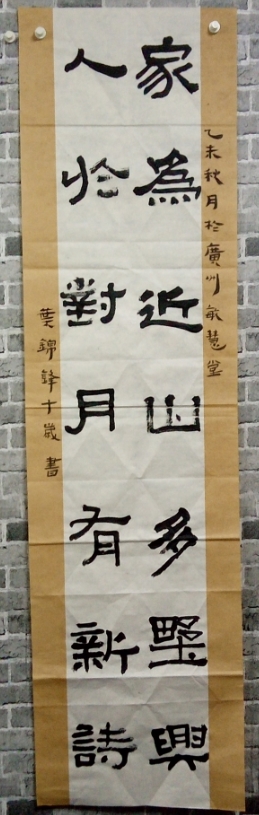 家為近山多野興
人於對月有新詩
乙未秋月於廣州敏慧堂
葉錦鋒十歲書